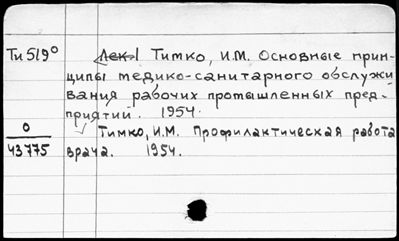 Ти 519° Лек-1 Тимко, И.М. Основные прин-
ципы медико-санитарного обслужи
вания рабочих промышленных пред-
приятий. 1954.
0 Тимко, И.М. Профилактическая работа
43775 врача. 1954.